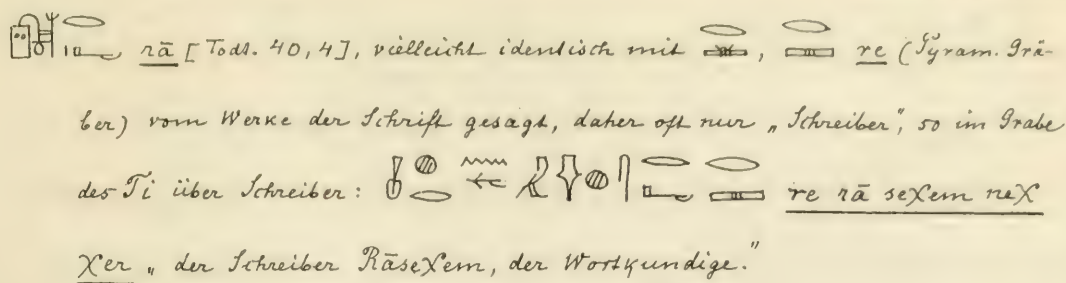 rā [Todt. 40,4], vielleicht identisch mit , re (Pyram. Grä-
ber) vom Werke der Schrift gesagt, daher oft nur „Schreiber“, so im Grabe
des Ti über Schreiber: re rā seχem neχ
χer „der Schreiber Rāseχem, der Wortkundige.“